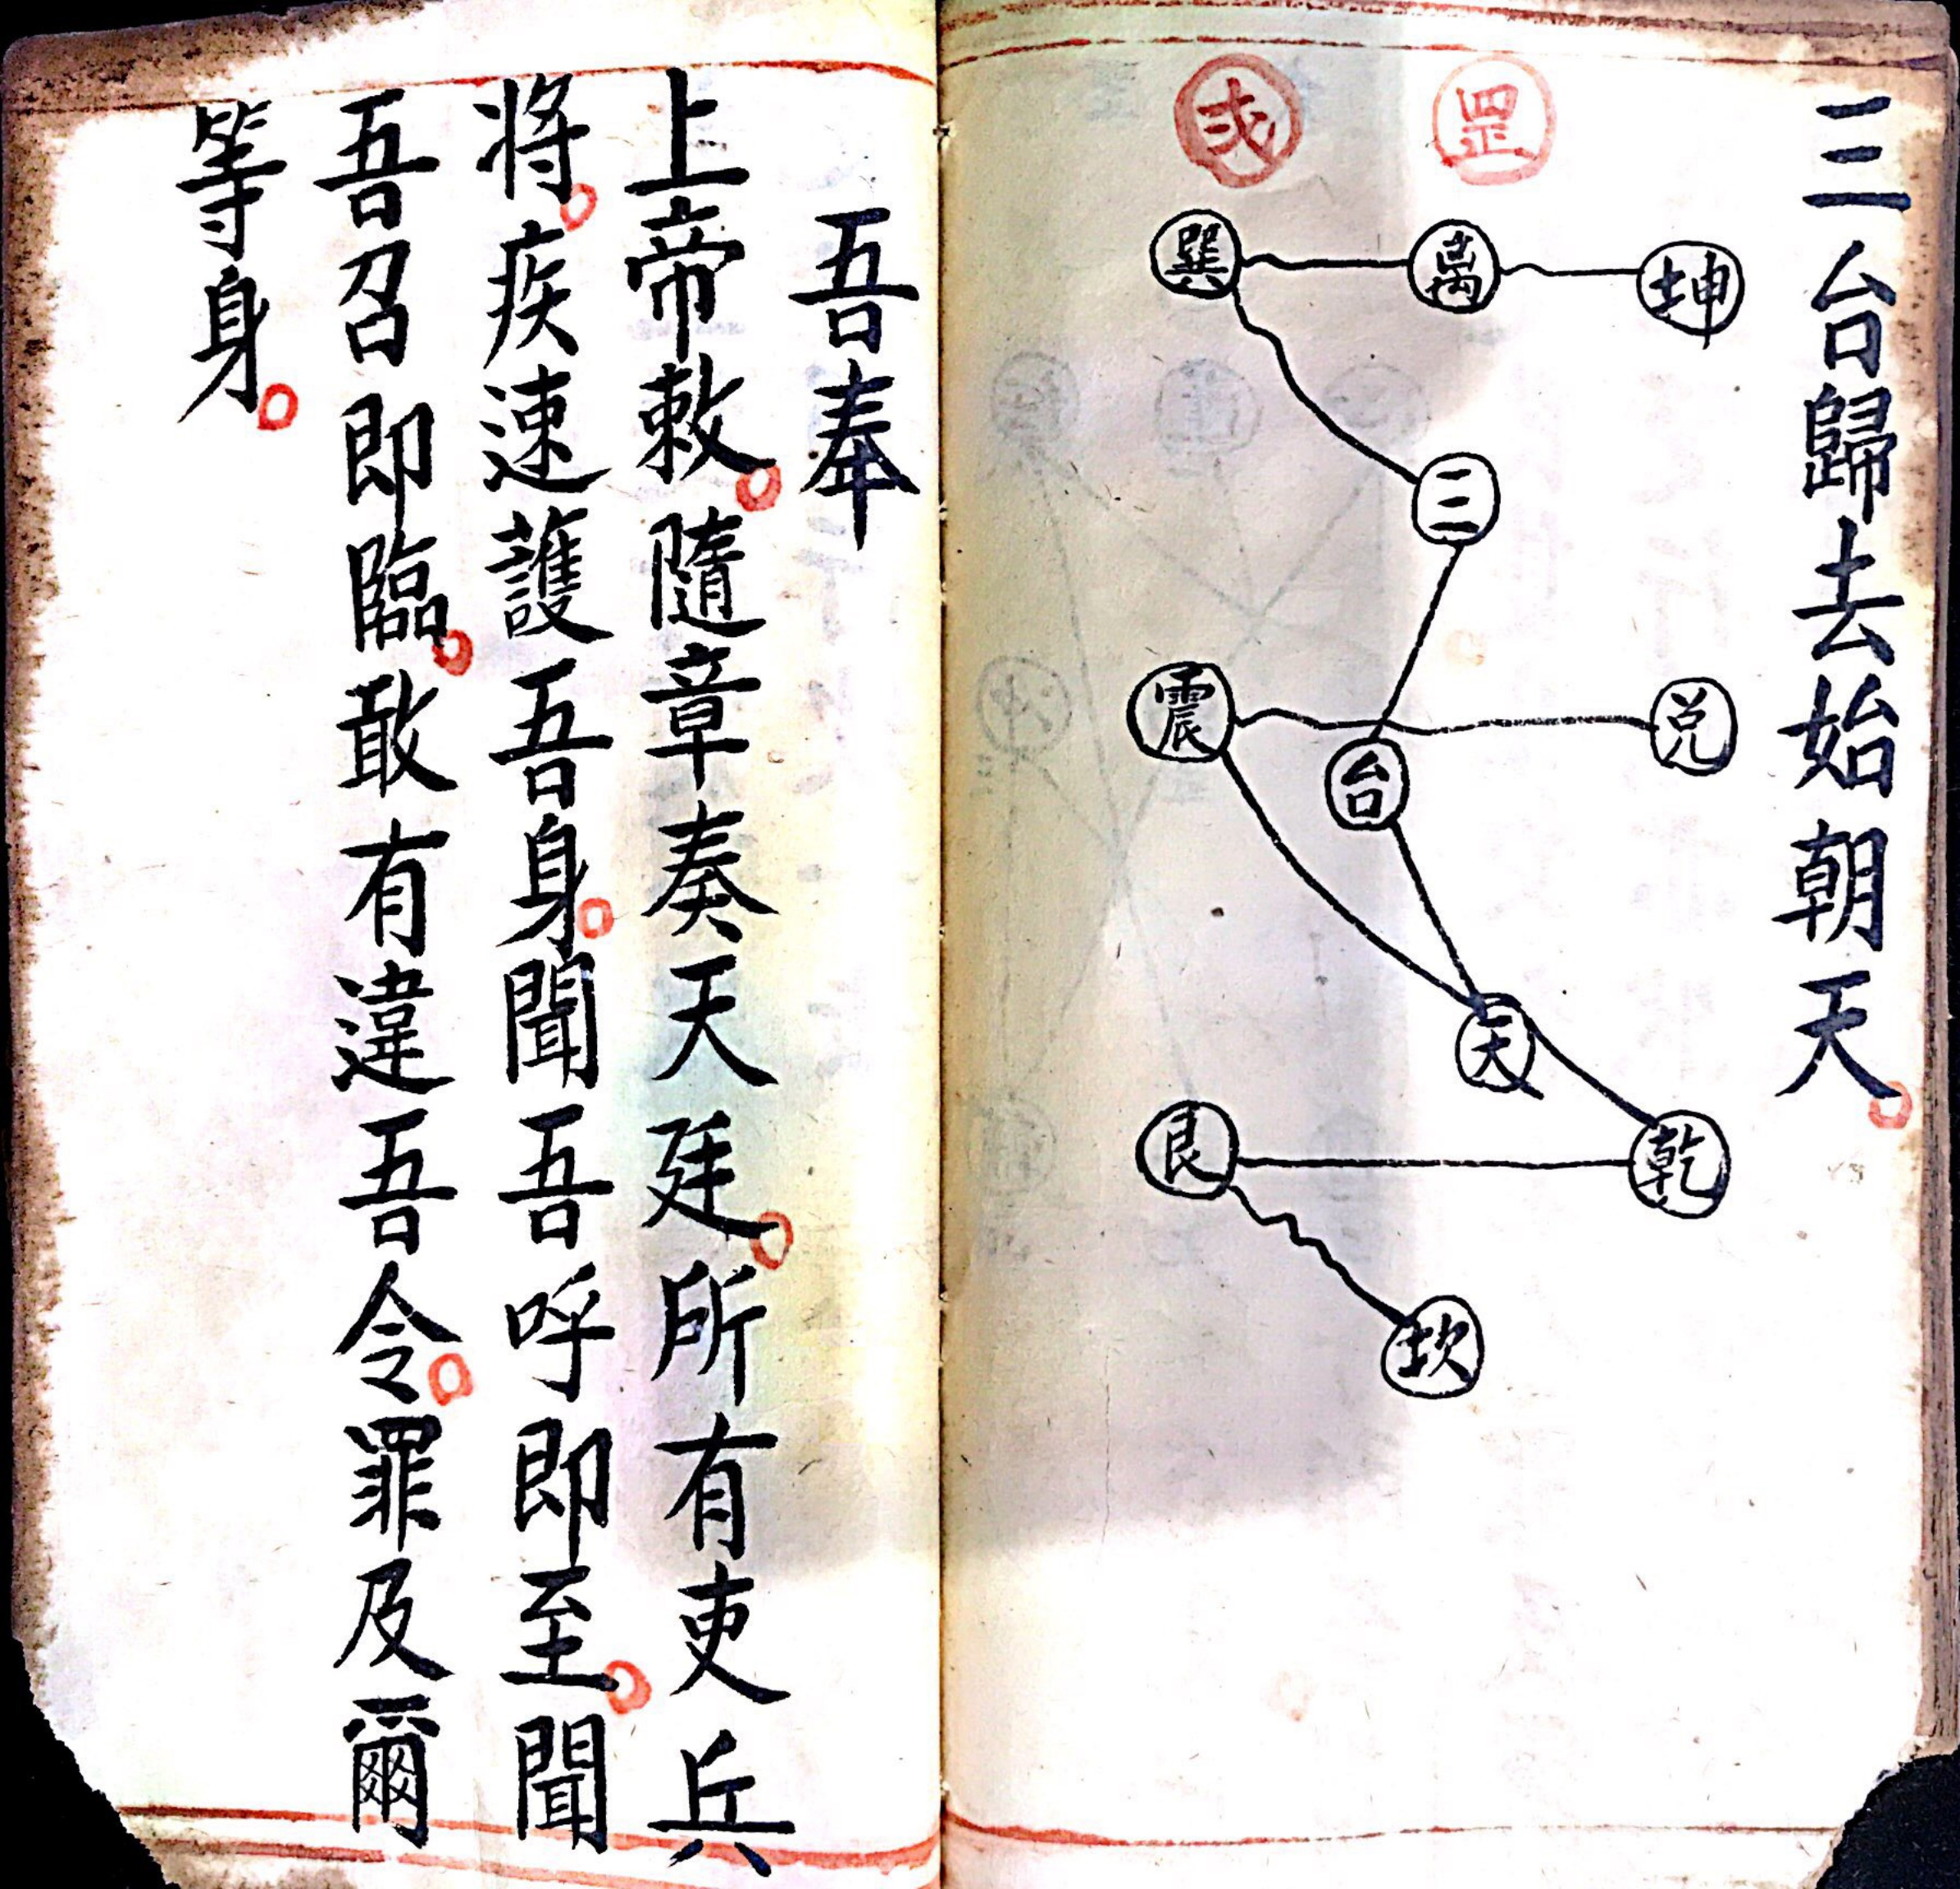 三台歸去始朝天
罡
坤
离
巽
三
兑
台
震
天
乾
艮
坎
吾奉
上帝敕隨章奏天廷所有吏兵
将疾速護吾身聞吾呼即至聞
吾召即臨敢有違吾令罪及爾
等身